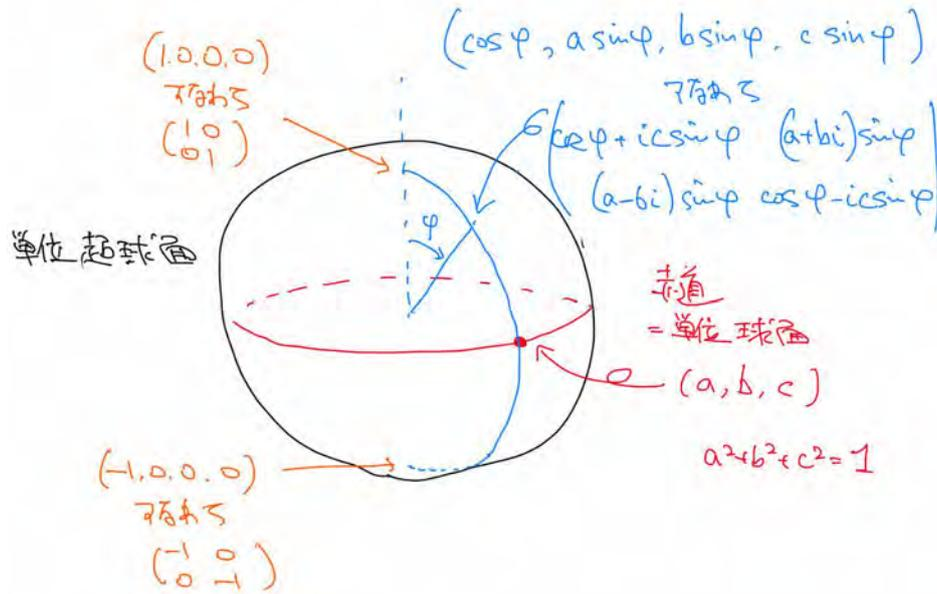 (1.0.0.0)
すなわち
(1 0
0 1)
(cosφ, a sinφ, b sinφ, c sinφ)
すなわち
(cosφ+icsinφ (a+bi)sinφ
(a-bi)sinφ cosφ-icsinφ)
φ
単位超球面
赤道
=単位球面
(a, b, c)
a²+b²+c²=1
(-1,0.0.0)
すなわち
(-1 0
0 -1)